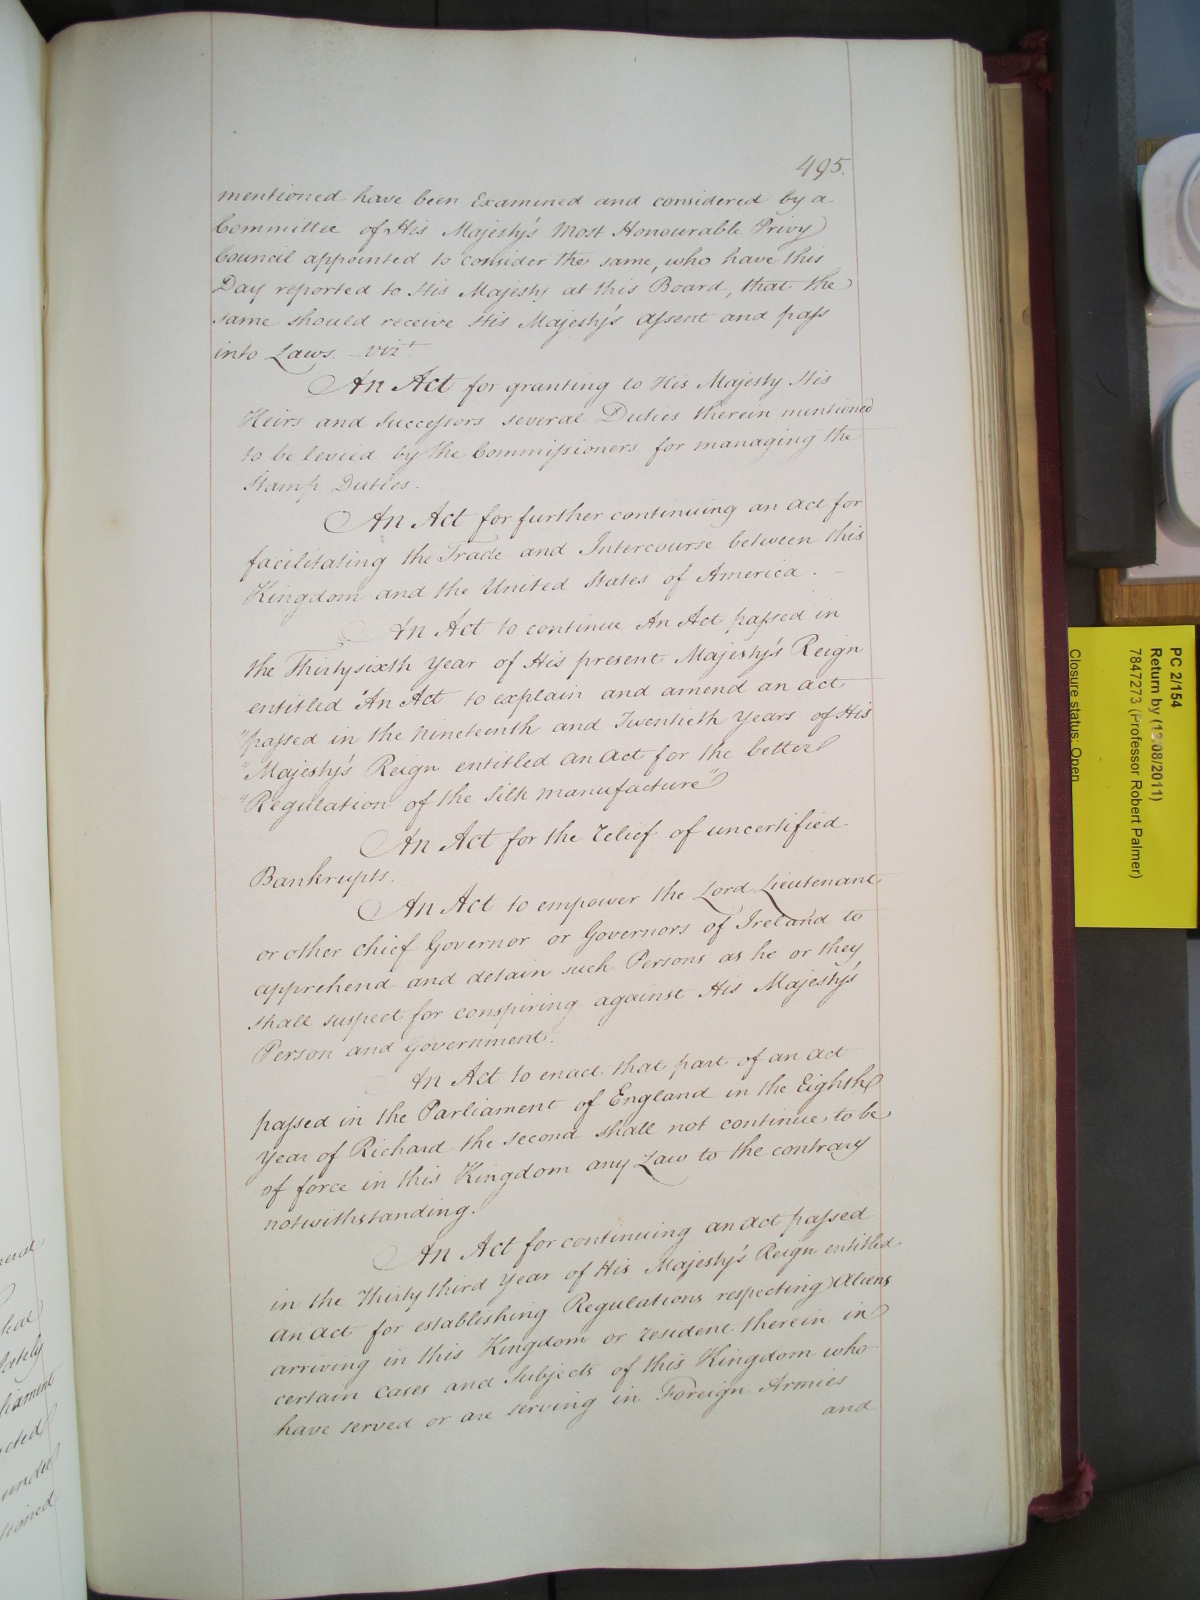 495.
mentioned have been Examined and considered by a
Committee of His Majesty's Most Honourable Privy
Council appointed to consider the same, who have this
Day reported to His Majesty at this Board, that the
same should receive His Majesty's assent and pass
into Laws. – vizt
An Act for granting to His Majesty His
Heirs and Successors several Duties therein mentioned
to be levied by the Commissioners for managing the
Stamp Duties.
An Act for further continuing an act for
facilitating the Trade and Intercourse between this
Kingdom and the United States of America. –
An Act to continue An Act passed in
the Thirtysixth Year of His present Majesty's Reign
entitled "An Act to explain and amend an act
"passed in the nineteenth and Twentieth Years of His
"Majesty's Reign entitled an Act for the better
"Regulation of the Silk manufacture"
An Act for the relief of uncertified
Bankrupts.
An Act to empower the Lord Lieutenant
or other chief Governor or Governors of Ireland to
apprehend and detain such Persons as he or they
shall suspect for conspiring against His Majesty's
Person and Government.
An Act to enact that part of an act
passed in the Parliament of England in the Eighth
Year of Richard the second shall not continue to be
of force in this Kingdom any Law to the contrary
notwithstanding.
An Act for continuing an act passed
in the Thirty third Year of His Majesty's Reign entitled
an act for establishing Regulations respecting Aliens
arriving in this Kingdom or resident therein in
certain cases and Subjects of this Kingdom who
have served or are serving in Foreign Armies
and
PC 2/154
Return by (1 08/2011)
7847273 (Professor Robert Palmer)
Closure status: Open